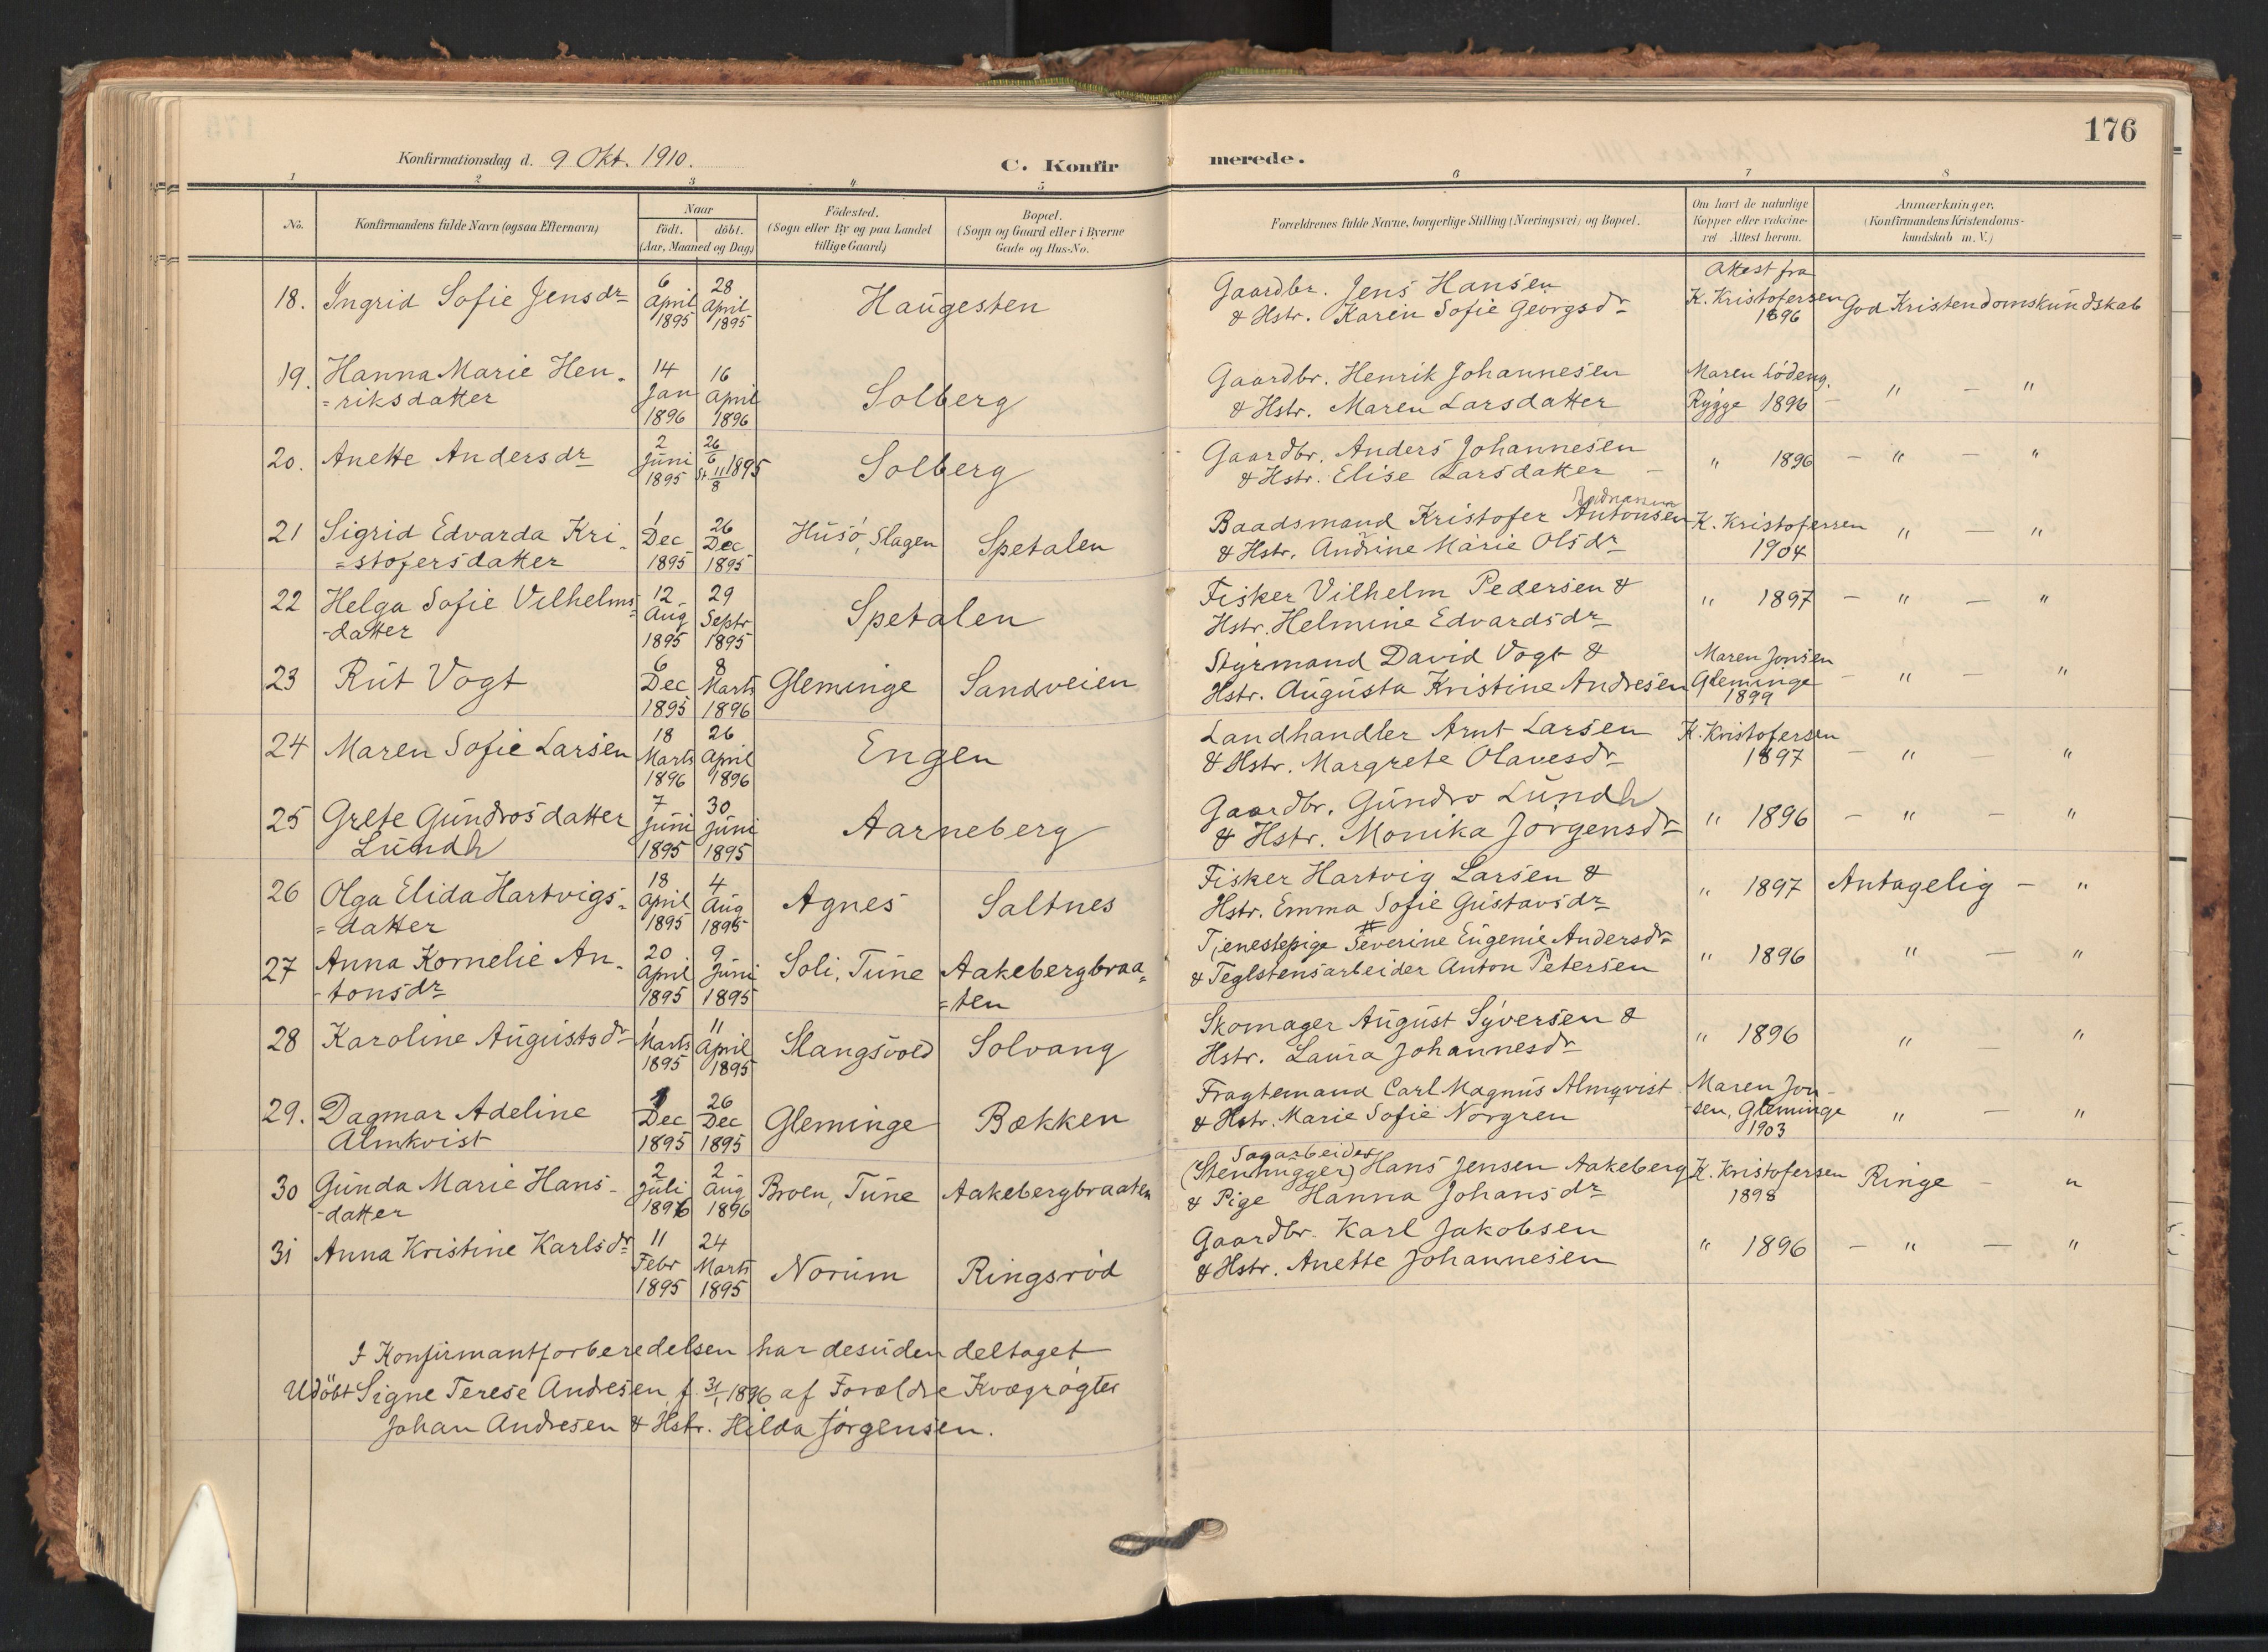 176
Konfirmationsdag d. 9 Okt. 1910. C. Konfirmerede.
1 2 3 4 5 6 7 8
No. Konfirmandens fulde Navn (ogsaa Efternavn) Naar født. døbt. (Aar, Maaned og Dag) Fødested. (Sogn eller By og paa Landet tillige Gaard) Bopæl. (Sogn og Gaard eller i Byerne Gade og Hus-No. Forældrenes fulde Navne, borgerlige Stilling (Næringsvei) og Bopæl. Om havt de naturlige Kopper eller vaccineret Attest herom. Anmærkninger. (Konfirmandens Kristendomskundskab m. V.)
18. Ingrid Sofie Jensdr 6 April 1895 28 April 1895 Haugesten Gaardbr. Jens Hansen & Hstr. Karen Sofie Georgsdr Attest fra K. Kristofersen 1896 God Kristendomskundskab
19. Hanna Marie Hen-
=riksdatter 14 Jan 1896 16 April 1896 Solberg Gaardbr. Henrik Johannesen & Hstr. Maren Larsdatter Maren Lödeng. Rygge 1896 - " - "
20. Anette Andersdr 2 Juni 1895 26/6 St 11/8 1895 Solberg Gaardbr. Anders Johannesen & Hstr. Elise Larsdatter " 1896 - " - "
21 Sigrid Edvarda Kri-
=stofersdatter 1 Dec 1895 26 Dec 1895 Husö, Slagen Spetalen Baadsmand Kristofer Antonsen & Hstr. Andrine Marie Olsdr K. Kristofersen 1904 " - "
22 Helga Sofie Vilhelms-
-datter 12 Aug 1895 29 Septr 1895 Spetalen Fisker Vilhelm Pedersen & Hstr. Helmine Edvardsdr " 1897 - " - "
23 Rut Vogt 6 Dec 1895 8 Marts 1896 Gleminge Sandveien Styrmand David Vogt & Hstr. Augusta Kristine Andresen Maren Jonsen Gleminge 1899 - " - "
24 Maren Sofie Larsen 18 Marts 1896 26 April 1896 Engen Landhandler Arnt Larsen & Hstr. Margrete Olavesdr K. Kristofersen 1897 - " - "
25 Grete Gundrosdatter
Lundh 7 Juni 1895 30 Juni 1895 Aarneberg Gaardbr. Gundro Lundh & Hstr. Monika Jörgensdr " 1896 - " - "
26 Olga Elida Hartvigs-
=datter 18 April 1895 4 Aug 1895 Agnes Saltnes Fisker Hartvig Larsen & Hstr. Emma Sofie Gustavsdr " 1897 Antagelig - "
27 Anna Kornelie An-
-tonsdr 20 April 1895 9 Juni 1895 Soli, Tune Aakebergbraa=
=ten Tjenestepige Severine Eugenie Andersdr & Teglstensarbeider Anton Petersen " 1896 " - "
28 Karoline Augustsdr 1 Marts 1895 11 April 1895 Slangsvold Solvang Skomager August Syversen & Hstr. Laura Johannesdr " 1896 " - "
29. Dagmar Adeline
Almkvist 1 Dec 1895 26 Dec 1895 Gleminge Bækken Fragtemand Carl Magnus Almqvist & Hstr. Marie Sofie Norgren Maren Jon-
-sen, Gleminge 1903 " - "
30 Gunda Marie Hans-
-datter 2 Juli 1896 2 Aug 1896 Broen, Tune Aakebergbraaten Sagarbeider (Stenhugger) Hans Jensen Aakeberg & Pige Hanna Johansdr K. Kristofersen 1898 Ringe - "
31 Anna Kristine Karlsdr 11 Febr 1895 24 Marts 1895 Norum Ringsröd Gaardbr. Karl Jakobsen & Hstr. Anette Johannesen " 1896 - " - "
I Konfirmantforberedelsen har desuden deltaget
Udöbt Signe Terese Andresen f. 31/1 1896 af Forældre Kvægrögter
Johan Andresen & Hstr. Hilda Jörgensen.